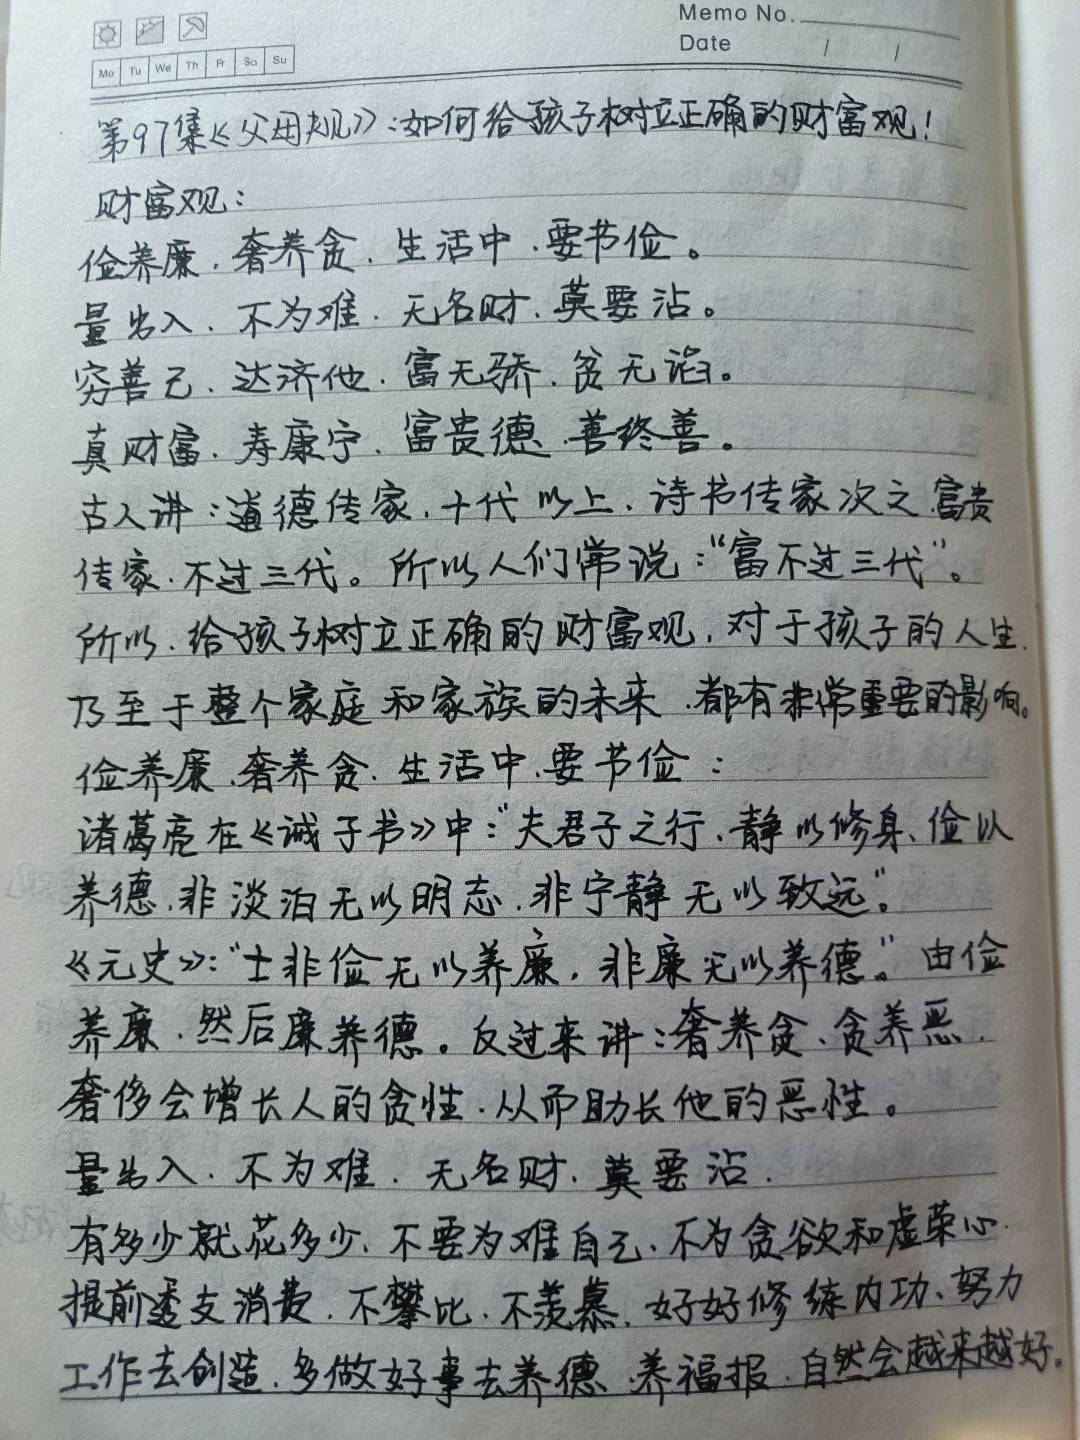 Memo No.
Date / /
Mo Tu We Th Fr Sa Su
第97集《父母规》:如何给孩子树立正确的财富观!
财富观:
俭养廉,奢养贪,生活中,要节俭。
量出入,不为难,无名财,莫要沾。
穷善己,达济他,富无骄,贫无谄。
真财富,寿康宁,富贵德,善终善。
古人讲:道德传家,十代以上,诗书传家次之,富贵
传家,不过三代。所以人们常说:"富不过三代"。
所以,给孩子树立正确的财富观,对于孩子的人生,
乃至于整个家庭和家族的未来,都有非常重要的影响。
俭养廉,奢养贪,生活中,要节俭:
诸葛亮在《诫子书》中:"夫君子之行,静以修身、俭以
养德,非淡泊无以明志,非宁静无以致远"。
《元史》:"士非俭无以养廉,非廉无以养德。"由俭
养廉,然后廉养德。反过来讲:奢养贪、贪养恶,
奢侈会增长人的贪性,从而助长他的恶性。
量出入,不为难,无名财,莫要沾,
有多少就花多少,不要为难自己,不为贪欲和虚荣心
提前透支消费,不攀比,不羡慕,好好修练内功、努力
工作去创造,多做好事去养德,养福报,自然会越来越好。